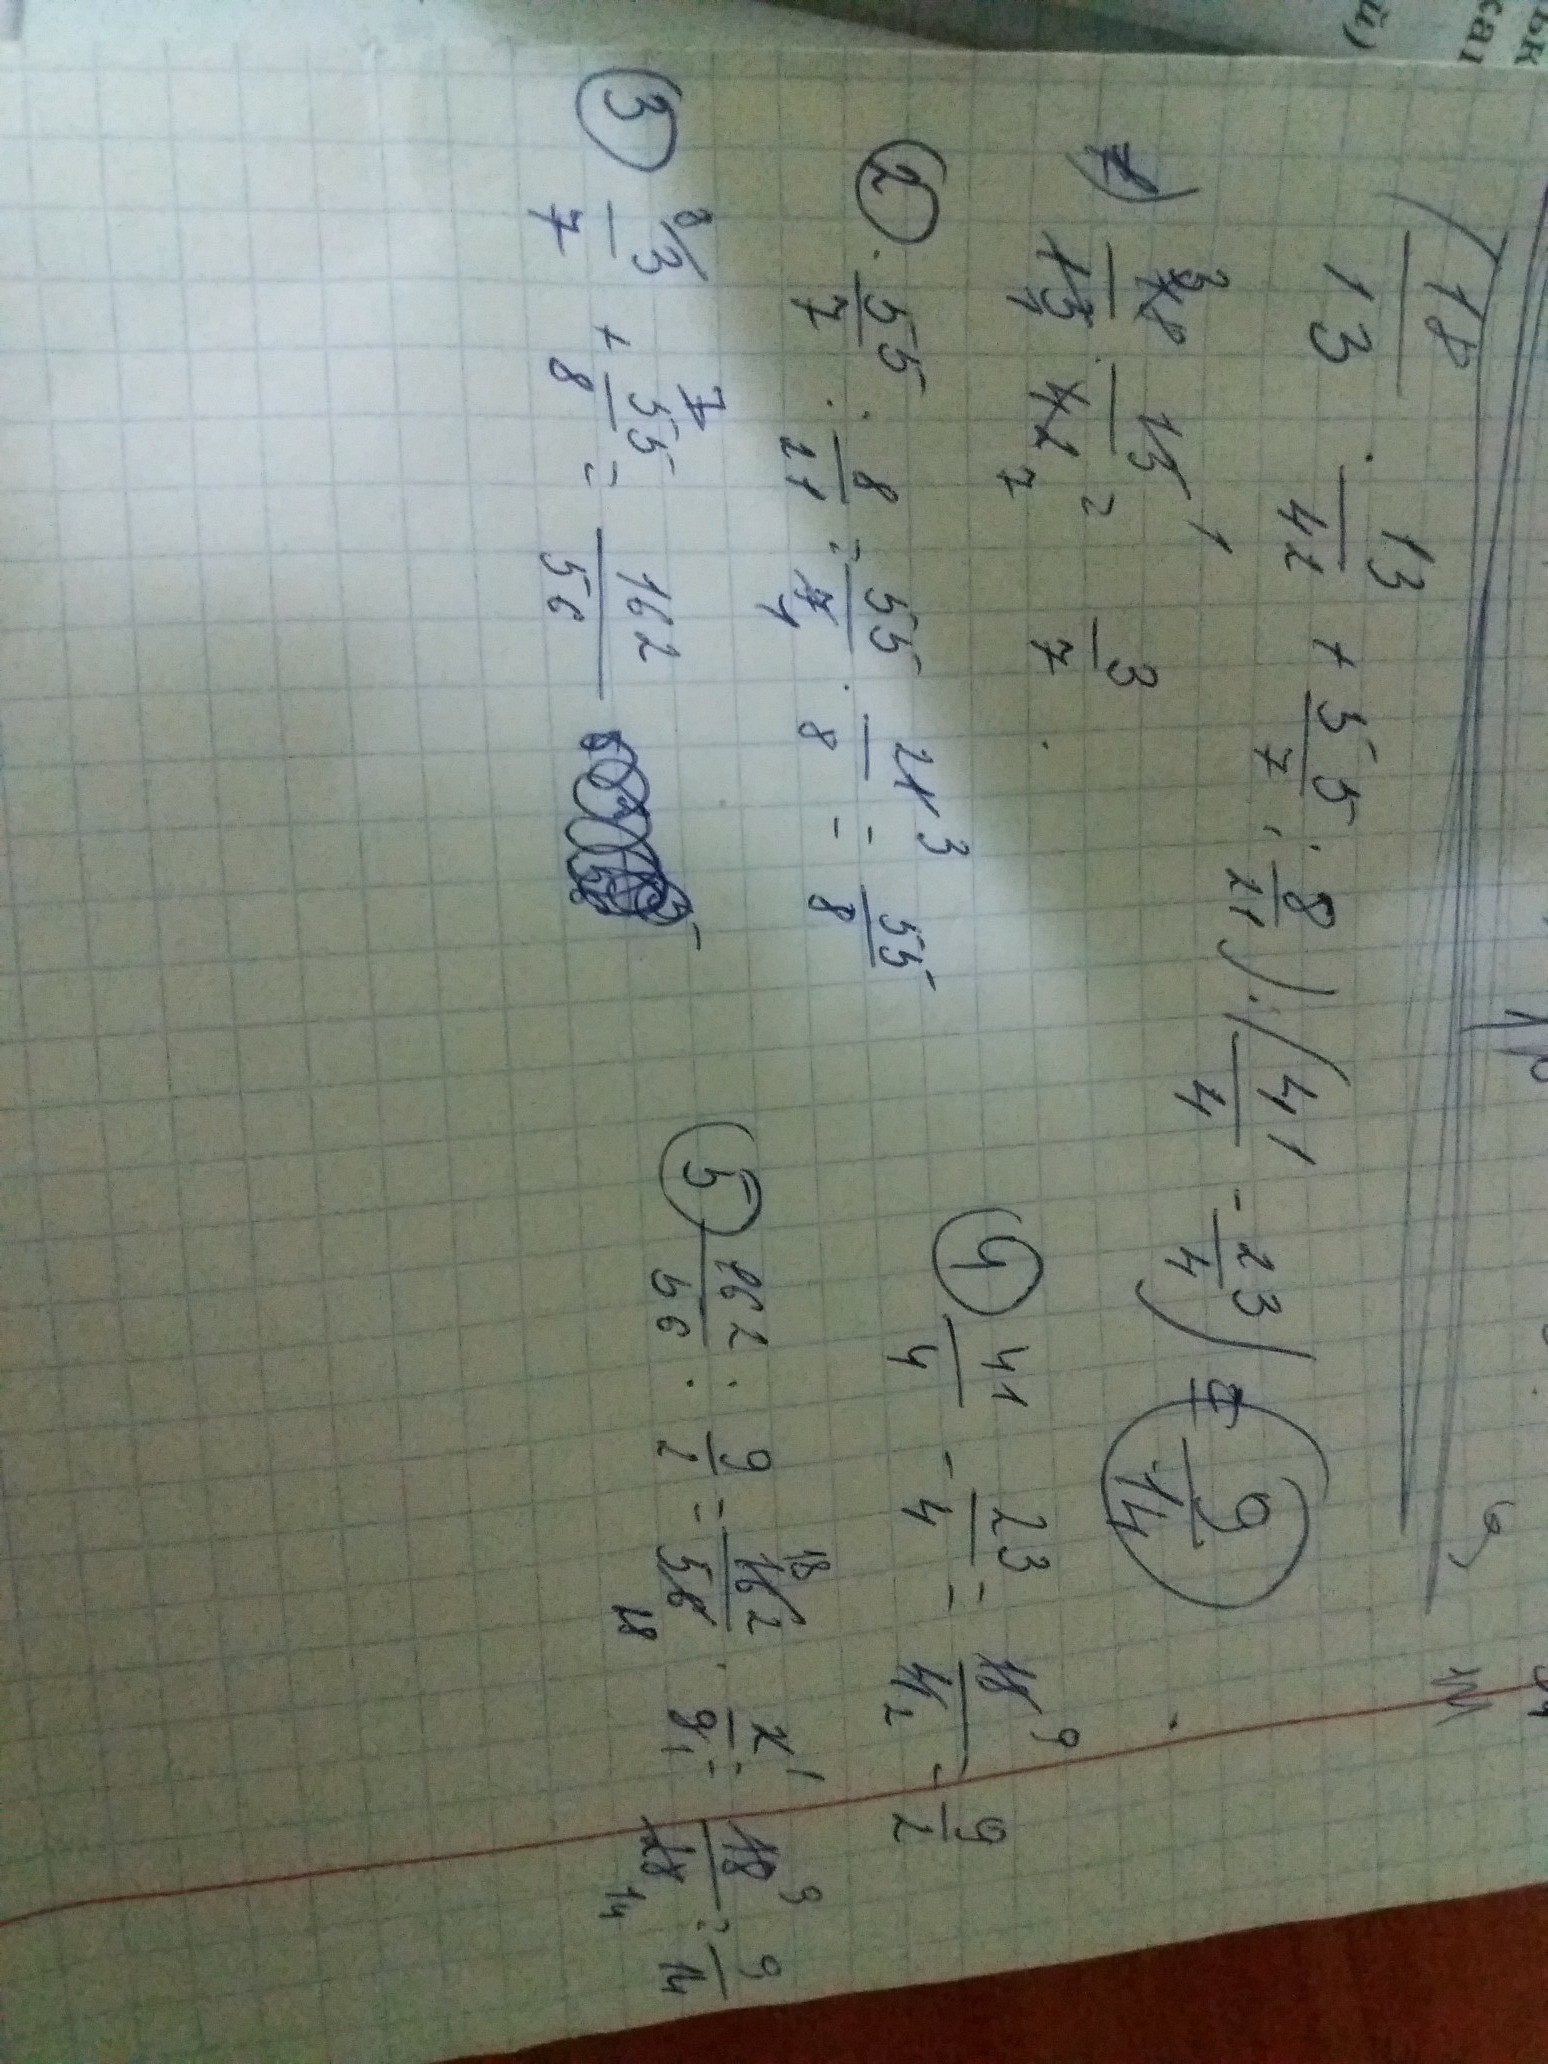 (18/13 · 13/42 + 55/7 : 8/21) : (41/4 - 23/4) = 9/14
1) 18/13 · 13/42 3/7
2 55/7 : 8/21 = 55/7 · 21/8 = 55/8
3 3/7 + 55/8 = 162/56
4 41/4 - 23/4 = 18/4 = 9/2
5 162/56 : 9/2 = 162/56 · 2/9 = 18/28 = 9/14